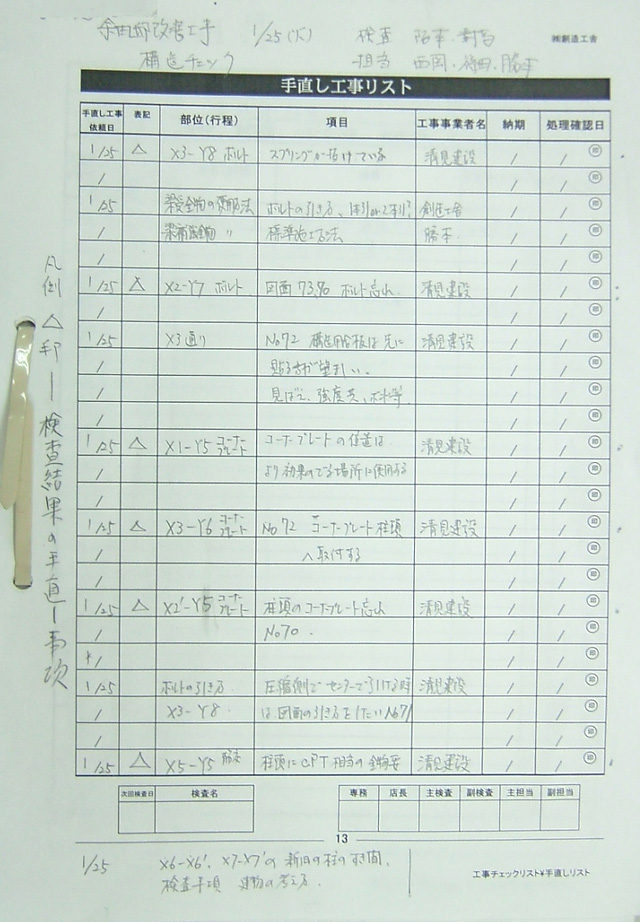 余田邸改善工事 1/25(火) 検査
構造チェック 担当 西岡、 、勝本
㈱創造工舎
手直し工事リスト
手直し工事依頼日 表記 部位(行程) 項目 工事事業者名 納期 処理確認日
1/25 △ X3-Y8 ボルト スプリングが抜けている 清見建設 / / 印
/ / / 印
1/25 梁受金物の使用方法 ボルトの引き方、 創造工舎 / / 印
/ 梁補強金物 〃 標準施工方法 勝本 / / 印
/ / / 印
1/25 △ X2-Y7 ボルト 図面73,90 ボルト忘れ 清見建設 / / 印
/ / / 印
1/25 X3通り No72 構造用合板は先に 清見建設 / / 印
/ 貼る方が望ましい。 / / 印
/ 見ばえ、強度差、 等 / / 印
/ / / 印
1/25 △ X1-Y5 コーナープレート コーナープレートの位置は 清見建設 / / 印
/ より効果のでる場所に使用する / / 印
/ / / 印
1/25 △ X3-Y6 コーナープレート No72 コーナープレート柱頭 清見建設 / / 印
/ へ取付する / / 印
/ / / 印
1/25 △ X2'-Y5 コーナープレート 柱頭のコーナープレート忘れ 清見建設 / / 印
/ No70. / / 印
/ / / 印
1/25 ボルトの引き方 圧縮側でセンターで引ける時 清見建設 / / 印
/ X3-Y8 は図面の引き方をしたいNo71 / / 印
/ / / 印
1/25 △ X5-Y5 柱頭にCPT相当の金物要 清見建設 / / 印
凡例 △印 ― 検査結果の手直し事項
次回検査日 検査名
専務 店長 主検査 副検査 主担当 副担当
13
1/25 X6-X6'、X7-X7'の新旧の柱のすき間、
検査手順 建物の考え方.
工事チェックリスト¥手直しリスト